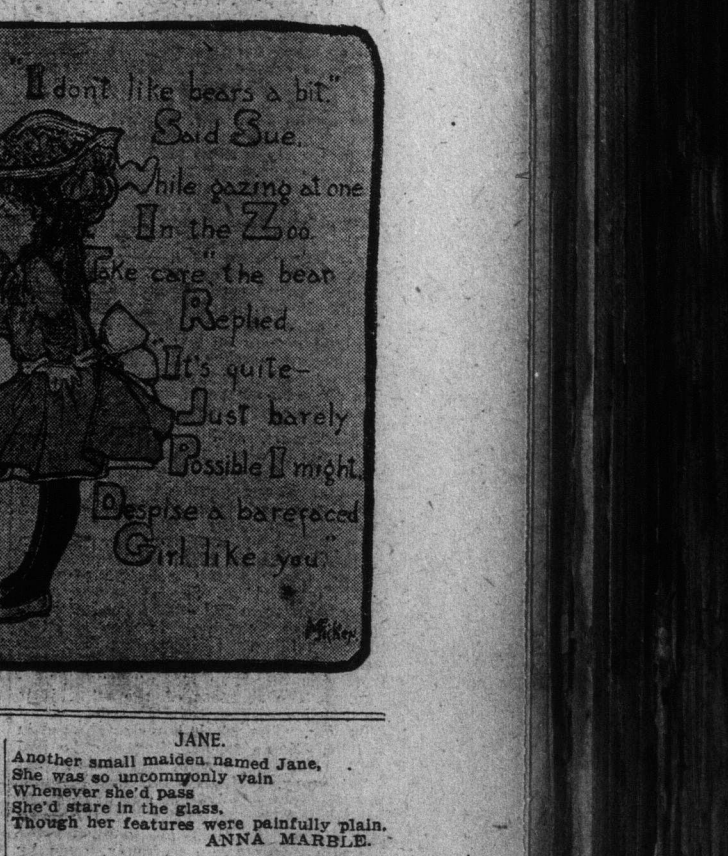 "I don't like bears a bit."
Said Sue,
While gazing at one
In the Zoo.
Take care," the bear
Replied,
"It's quite—
Just barely
Possible I might,
Despise a barefaced
Girl like you."
JANE.
Another small maiden named Jane,
She was so uncommonly vain
Whenever she'd pass
She'd stare in the glass,
Though her features were painfully plain.
ANNA MARBLE.